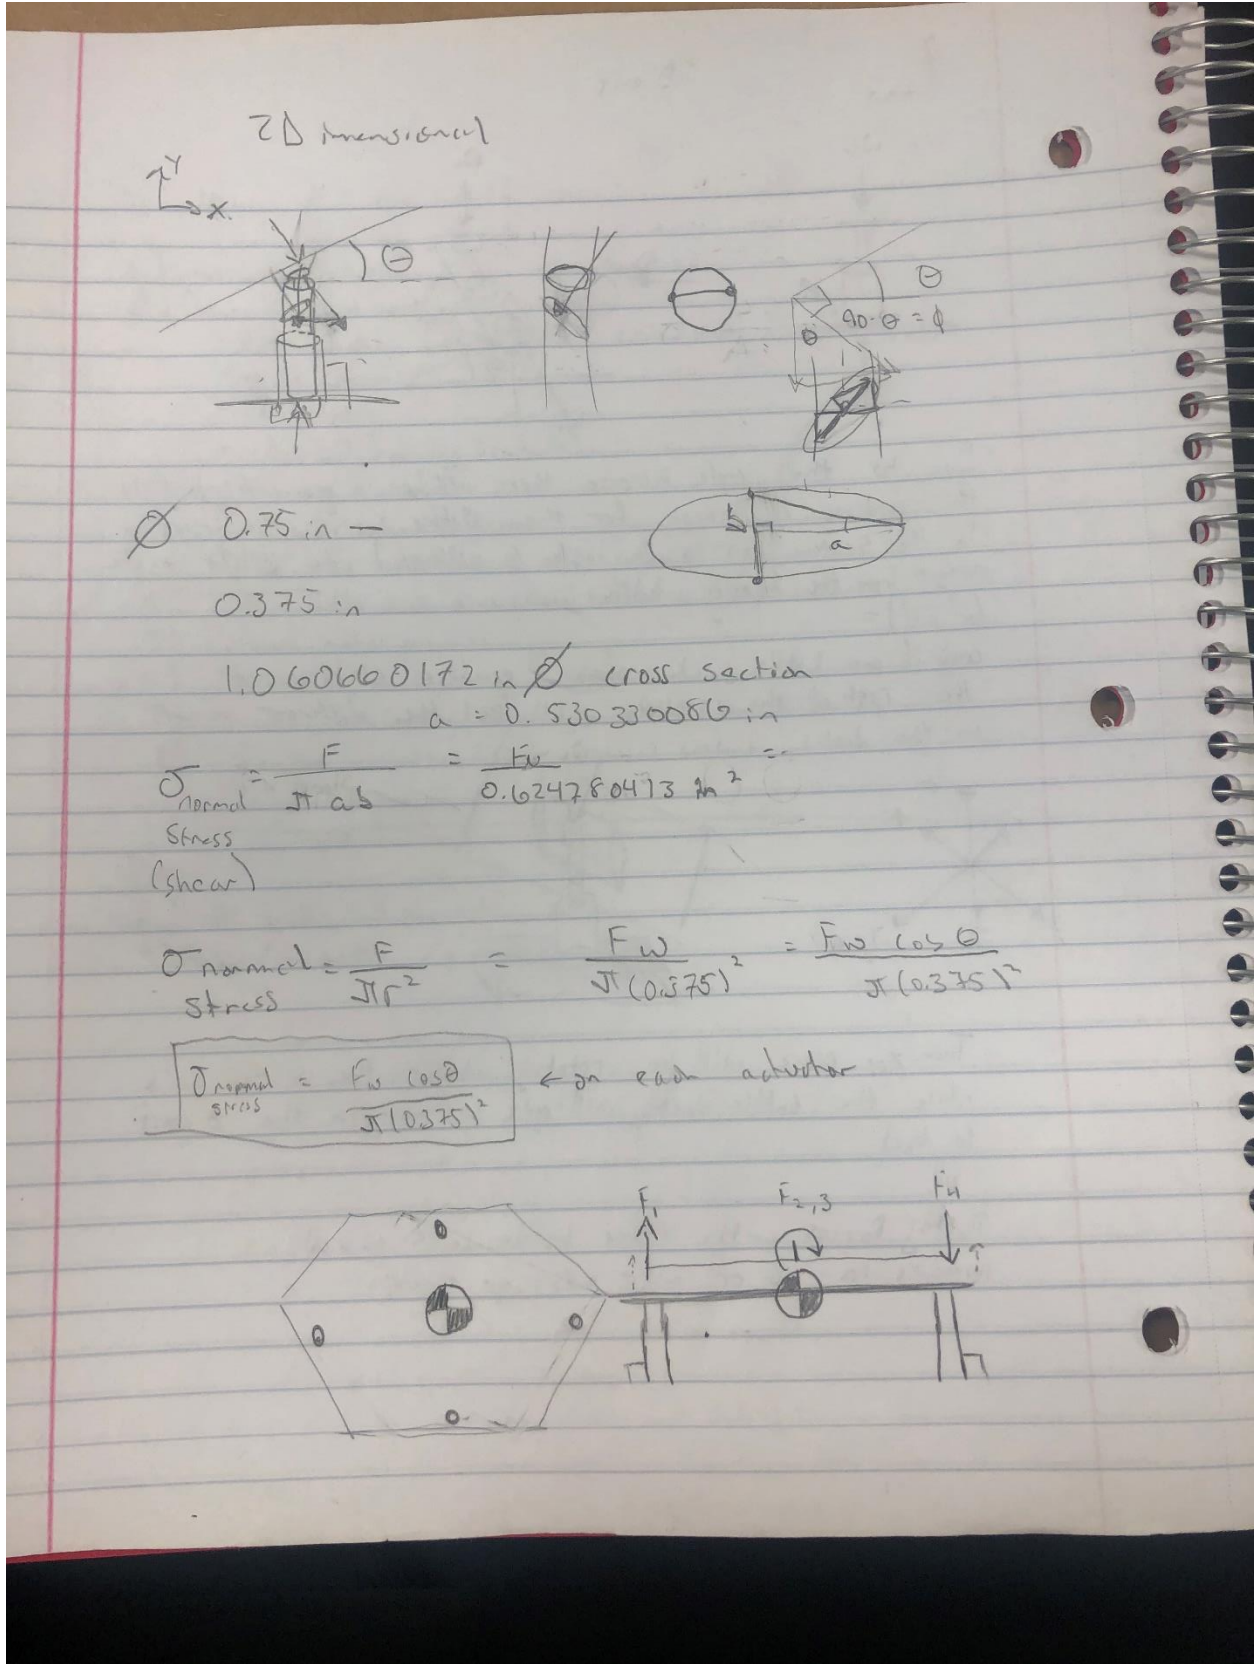 2Dimensional
Y
X
θ
θ
90-θ = ϕ
θ
Ø 0.75 in —
b
a
0.375 in
1.060660172 in Ø cross section
a = 0.530330086 in
σ normal stress (shear) = F / π ab = Fw / 0.624780413 in² =
σ normal stress = F / πr² = Fw / π(0.375)² = Fw cosθ / π(0.375)²
σ normal stress = Fw cosθ / π(0.375)² ← on each actuator
F₁ F₂,₃ F₄